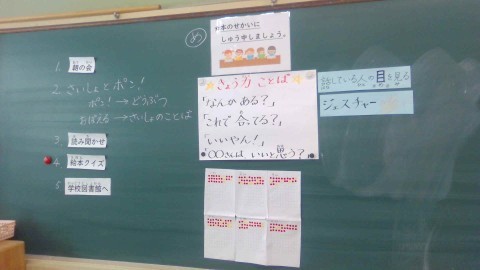 1. 朝の会
2. さいしょとポン!
ポン! → どうぶつ
おぼえる → さいしょのことば
3. 読み聞かせ
4. 絵本クイズ
5. 学校図書館へ
め
本のせかいに
しゅう中しましょう。
きょう力 ことば
「なんかある?」
「これで合ってる?」
「いいやん!」
「〇〇さんは、いいと思う?」
話している人の目を見る
ジェスチャー